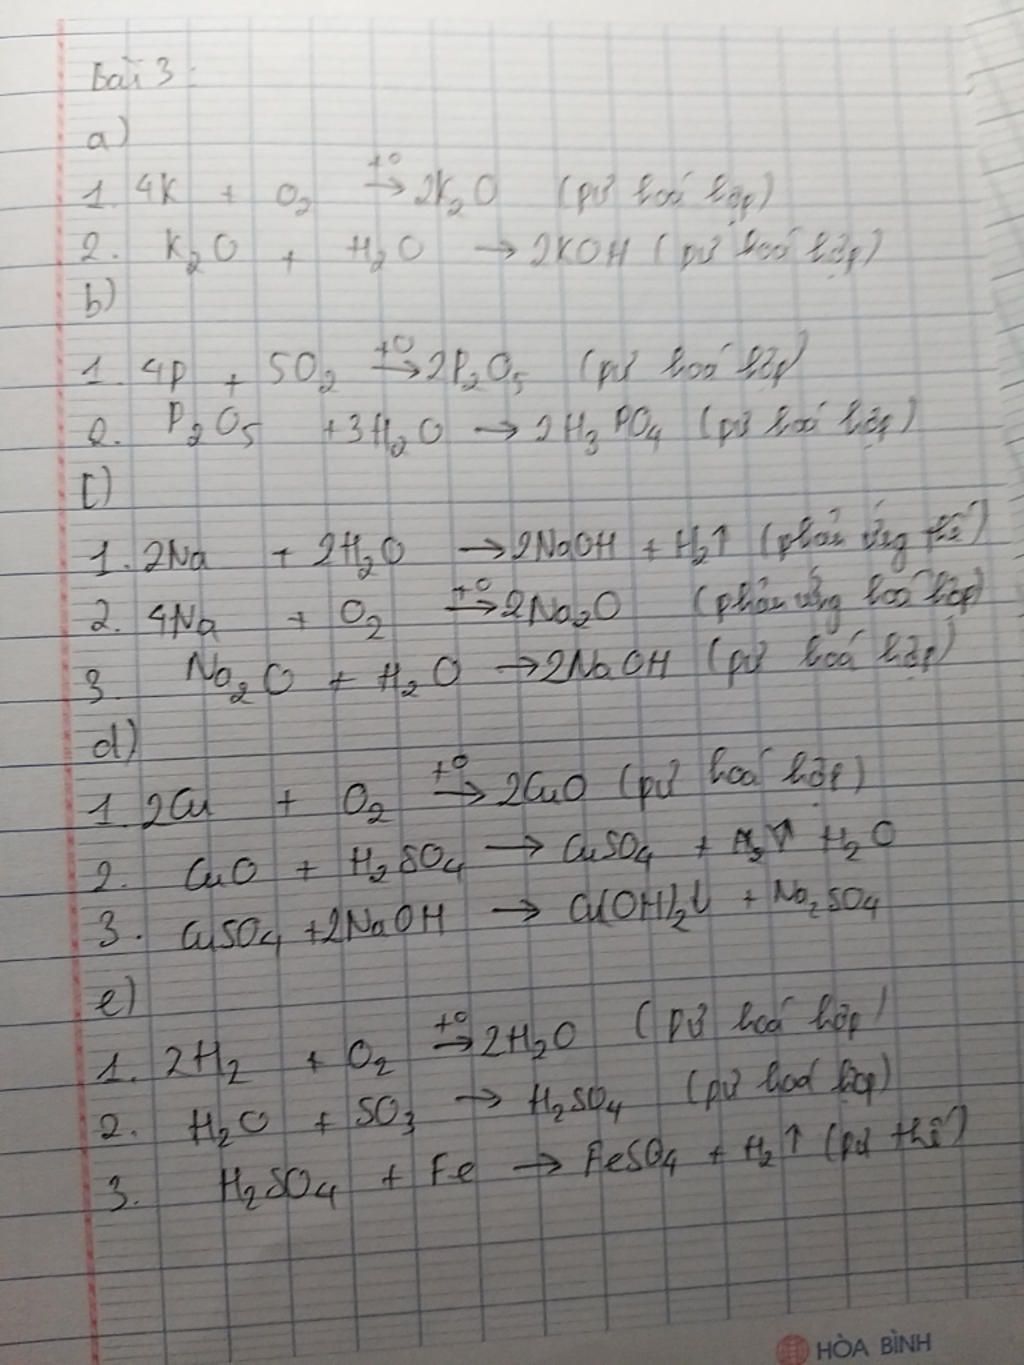 Bài 3:
a)
1. 4K + O₂ →t° 2K₂O (pứ hoá hợp)
2. K₂O + H₂O → 2KOH (pứ hoá hợp)
b)
1. 4P + 5O₂ →t° 2P₂O₅ (pứ hoá hợp)
2. P₂O₅ +3H₂O → 2H₃PO₄ (pứ hoá hợp)
c)
1. 2Na + 2H₂O → 2NaOH + H₂↑ (phản ứng thế)
2. 4Na + O₂ →t° 2Na₂O (phản ứng hoá hợp)
3. Na₂O + H₂O → 2NaOH (pứ hoá hợp)
d)
1. 2Cu + O₂ →t° 2CuO (pứ hoá hợp)
2. CuO + H₂SO₄ → CuSO₄ + H₂O
3. CuSO₄ +2NaOH → Cu(OH)₂↓ + Na₂SO₄
e)
1. 2H₂ + O₂ →t° 2H₂O (pứ hoá hợp)
2. H₂O + SO₃ → H₂SO₄ (pứ hoá hợp)
3. H₂SO₄ + Fe → FeSO₄ + H₂↑ (pứ thế)
HÒA BÌNH